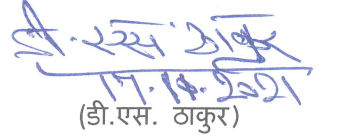 डी.एस ठाकुर
17.11.2021
(डी.एस. ठाकुर)